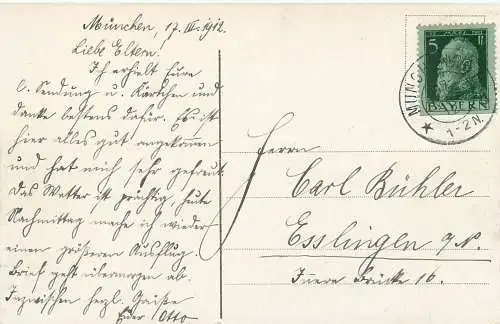 München, 17. III. 1912.
Liebe Eltern!
Ich erhielt Eure
l. Sendung u. Kärtchen und
danke bestens dafür. Es ist
hier alles gut angekommen
und hat mich sehr gefreut.
Das Wetter ist prächtig, heute
Nachmittag mache ich wieder
einen größeren Ausflug.
Brief geht übermorgen ab.
Inzwischen herzl. Grüße
Euer Otto
5
BAYERN
MÜNC
1-2 N.
Herrn
Carl Bühler
Esslingen a/N.
Innere Brücke 16.